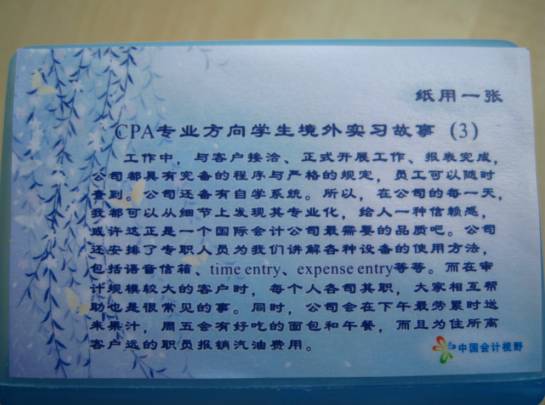 纸用一张
CPA专业方向学生境外实习故事 (3)
工作中，与客户接洽、正式开展工作、报表完成，
公司都具有完备的程序与严格的规定，员工可以随时
看到。公司还备有自学系统。所以，在公司的每一天，
我都可以从细节上发现其专业化，给人一种信赖感，
或许这正是一个国际会计公司最需要的品质吧。公司
还安排了专职人员为我们讲解各种设备的使用方法，
包括语音信箱、time entry、expense entry等等。而在审
计规模较大的客户时，每个人各司其职，大家相互帮
助也是很常见的事。同时，公司会在下午最劳累时送
来果汁，周五会有好吃的面包和午餐，而且为住所离
客户远的职员报销汽油费用。
中国会计视野